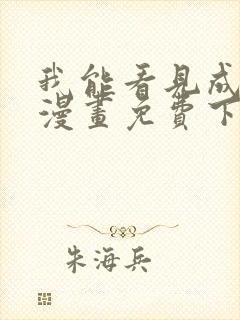 我能看見成
漫畫免費下
朱海兵